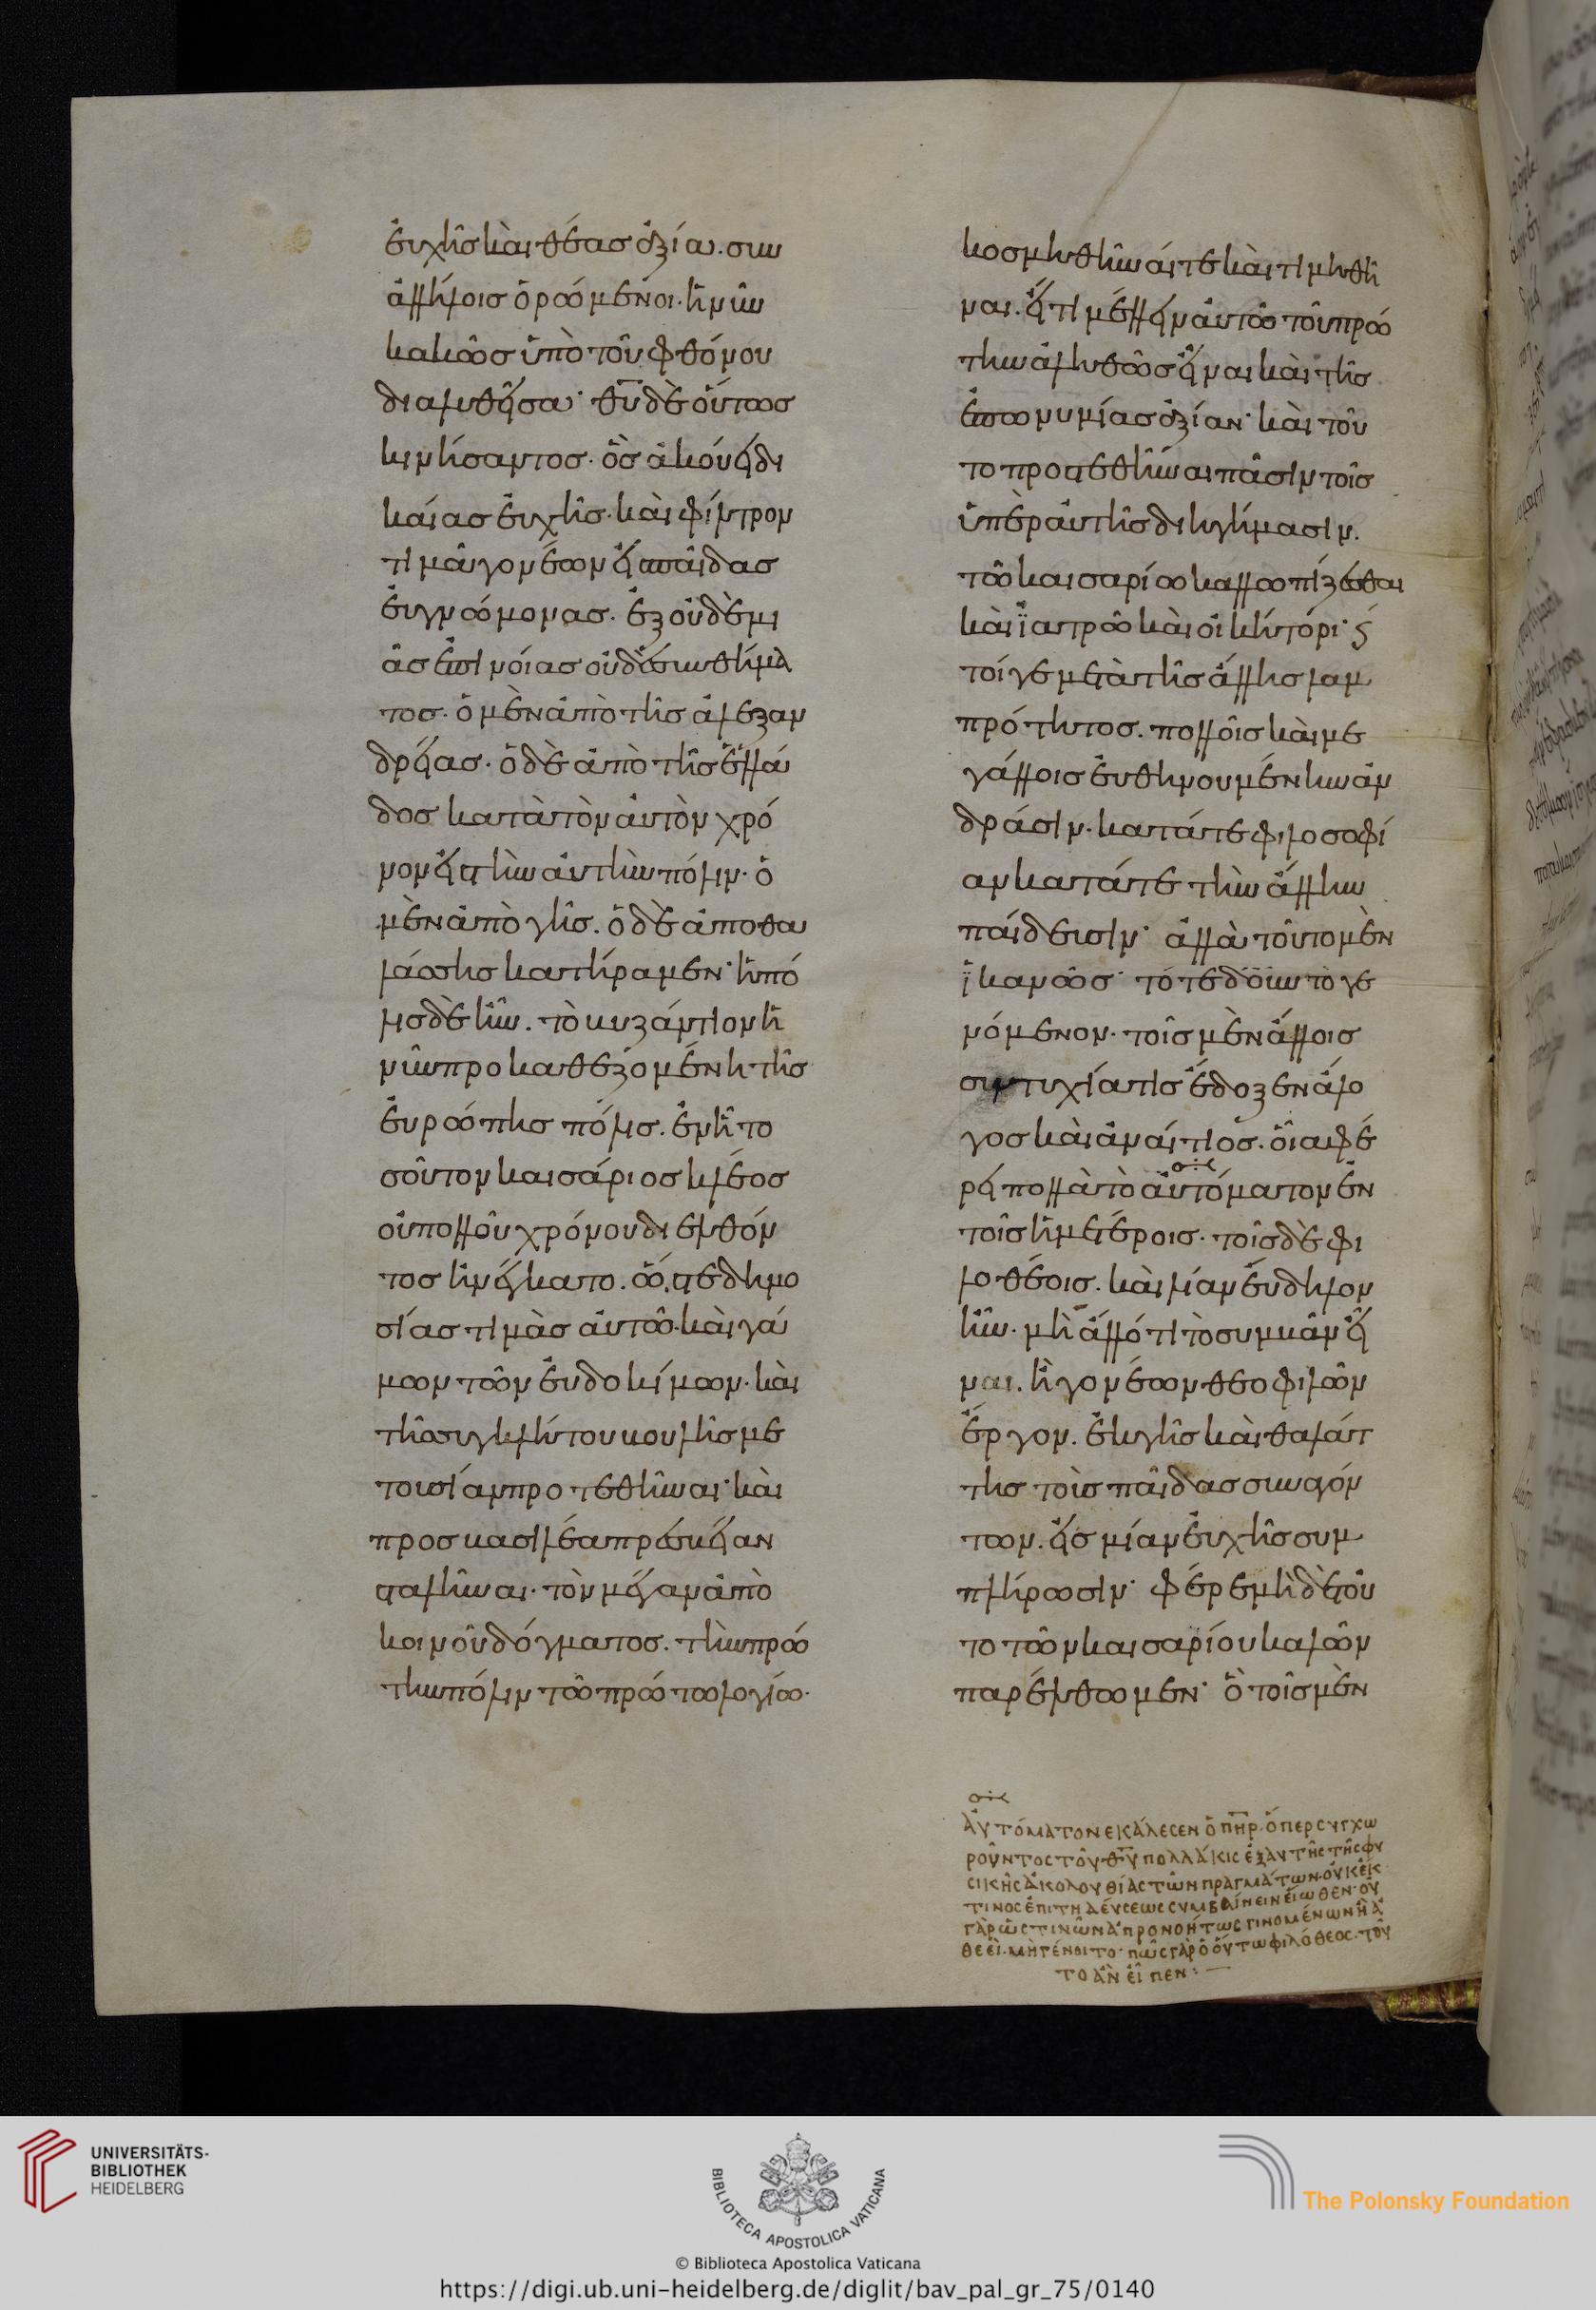 εὐχῆς καὶ θέας ἀξία. σὺν
ἀλλήλοις ὁρώμενοι. ἡ νῦν
κακῶς ὑπὸ τοῦ φθόνου
διαλυθεῖσα· θῡ δὲ οὕτως
κινήσαντος. ὃς ἀκούει δι
καίας εὐχῆς. καὶ φίλτρον
τιμᾶ γονέων εἰς παῖδας
εὐγνώμονας. ἐξ οὐδὲ μι
ᾶς ἐπινοίας οὐδὲ συνθήμα
τος. ὁ μὲν ἀπὸ τῆς ἀλεξαν
δρείας. ὁ δὲ ἀπὸ τῆς ἑλλά
δος κατὰ τὸν αὐτὸν χρό
νον εἰς τὴν αὐτὴν πόλιν. ὁ
μὲν ἀπὸ γῆς. ὁ δὲ ἀπὸ θα
λάσσης κατήραμεν· ἡ πό
λις δὲ ἦν. τὸ βυζάντιον ἡ
νῦν προκαθεζομένη τῆς
εὐρώπης πόλις. ἐν ᾗ το
σοῦτον καισάριος κλέος
οὐ πολλοῦ χρόνου διελθόν
τος ἠνέγκατο. ὥστε δημο
σίας τιμὰς αὐτῶ. καὶ γά
μον τῶν εὐδοκίμων. καὶ
τῆς συγκλήτου βουλῆς με
τουσίαν προτεθῆναι· καὶ
πρὸς βασιλέα πρέσβειαν
σταλῆναι. τὸν μέγαν ἀπὸ
κοινοῦ δόγματος. τὴν πρώ
την πόλιν τῶ πρώτω λογίω.
κοσμηθῆναί τε καὶ τιμηθῆ
ναι. εἴ τι μέλλειν αὐτῶ τοῦ πρώ
την ἀληθῶς εἶναι καὶ τῆς
ἐπωνυμίας ἀξίαν· καὶ τοῦ
το προστεθῆναι πᾶσιν τοῖς
ὑπὲρ αὐτῆς διηγήμασιν.
τῶ καισαρίω καλλωπίζεσθαι
καὶ ἰατρῶ καὶ οἰκήτορι· καί
τοί γε μετὰ τῆς ἄλλης λαμ
πρότητος. πολλοῖς καὶ με
γάλοις εὐθηνουμένην ἀν
δράσιν. κατά τε φιλοσοφί
αν κατά τε τὴν ἄλλην
παίδευσιν· ἀλλὰ τοῦτο μὲν
ἱκανῶς· τότε δ' οὖν τὸ γε
νόμενον. τοῖς μὲν ἄλλοις
συντυχία τις ἔδοξεν ἄλο
γος καὶ ἀναίτιος. οἷα φέ
ρει πολλὰ τὸ αὐτόματον ἐν
τοῖς ἡμετέροις. τοῖς δὲ φι
λοθέοις. καὶ λίαν εὔδηλον
ἦν. μὴ ἄλλό τι τὸ συμβὰν εἶ
ναι. ἢ γονέων θεοφιλῶν
ἔργον. ἐκ γῆς καὶ θαλάτ
της τοὺς παῖδας συναγόν
των. εἰς μίαν εὐχῆς συμ
πλήρωσιν· φέρε μὴ δὲ τοῦ
το τῶν καισαρίου καλῶν
παρέλθωμεν· ὃ τοῖς μὲν
ἀυτόματον ἐκάλεσεν ὁ πηρ. ὅπερ συγχω
ροῦντος τοῦ θῡ πολλάκις ἐξ αὐτῆς τῆς φυ
σικῆς ἀκολουθίας τῶν πραγμάτων. οὐκ ἔκ
τινος ἐπιτηδεύσεως συμβαίνειν εἴωθεν· οὐ
γὰρ ὥς τινῶν ἀπρονοήτως γινομένων ἢ ἀ
θεεὶ. μὴ γένοιτο· πῶς γὰρ ὁ οὕτω φιλόθεος. τοῦ
το ἂν εἶπεν:
UNIVERSITÄTS-
BIBLIOTHEK
HEIDELBERG
BIBLIOTECA APOSTOLICA VATICANA
The Polonsky Foundation
© Biblioteca Apostolica Vaticana
https://digi.ub.uni-heidelberg.de/diglit/bav_pal_gr_75/0140